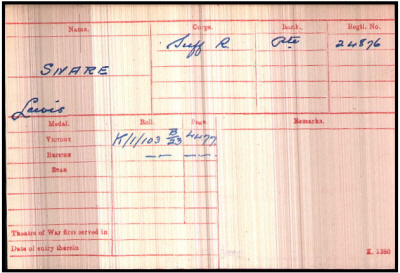 Name. Corps. Rank. Regtl. No.
SNARE Suff R. Pte 24876
Lewis
Medal. Roll. Page. Remarks.
VICTORY K/1/103 B/23 4477
BRITISH —"— —"—
STAR
Theatre of War first served in
Date of entry therein
K. 1380